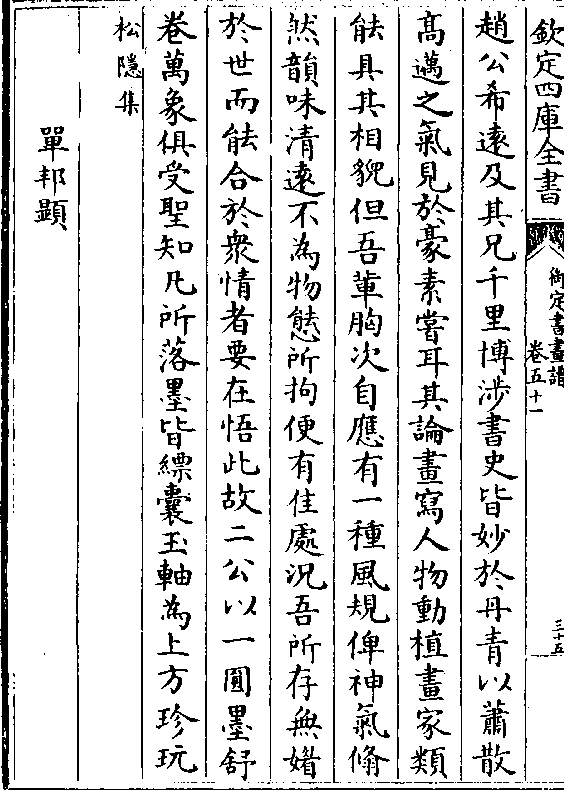 欽定四庫全書
御定書畫譜
卷五十一
三十五
趙公希遠及其兄千里博涉書史皆妙於丹青以蕭散
髙邁之氣見於豪素嘗耳其論畫寫人物動植畫家類
能具其相貎但吾輩胸次自應有一種風規俾神氣翛
然韻味清遠不為物態所拘便有佳處況吾所存無媚
於世而能合於衆情者要在悟此故二公以一圓墨舒
卷萬象俱受聖知凡所落墨皆縹囊玉軸為上方珍玩
松隱集
單邦顯